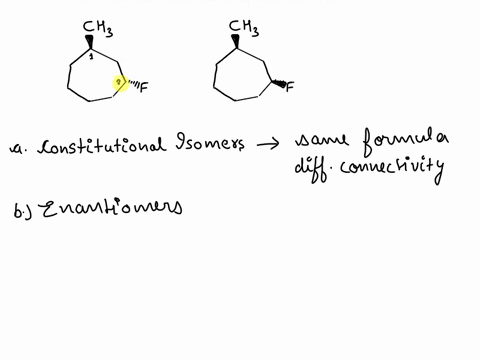 CH3 CH3
1
F F
a. Constitutional Isomers → same formula
diff. connectivity
b.) Enantiomers